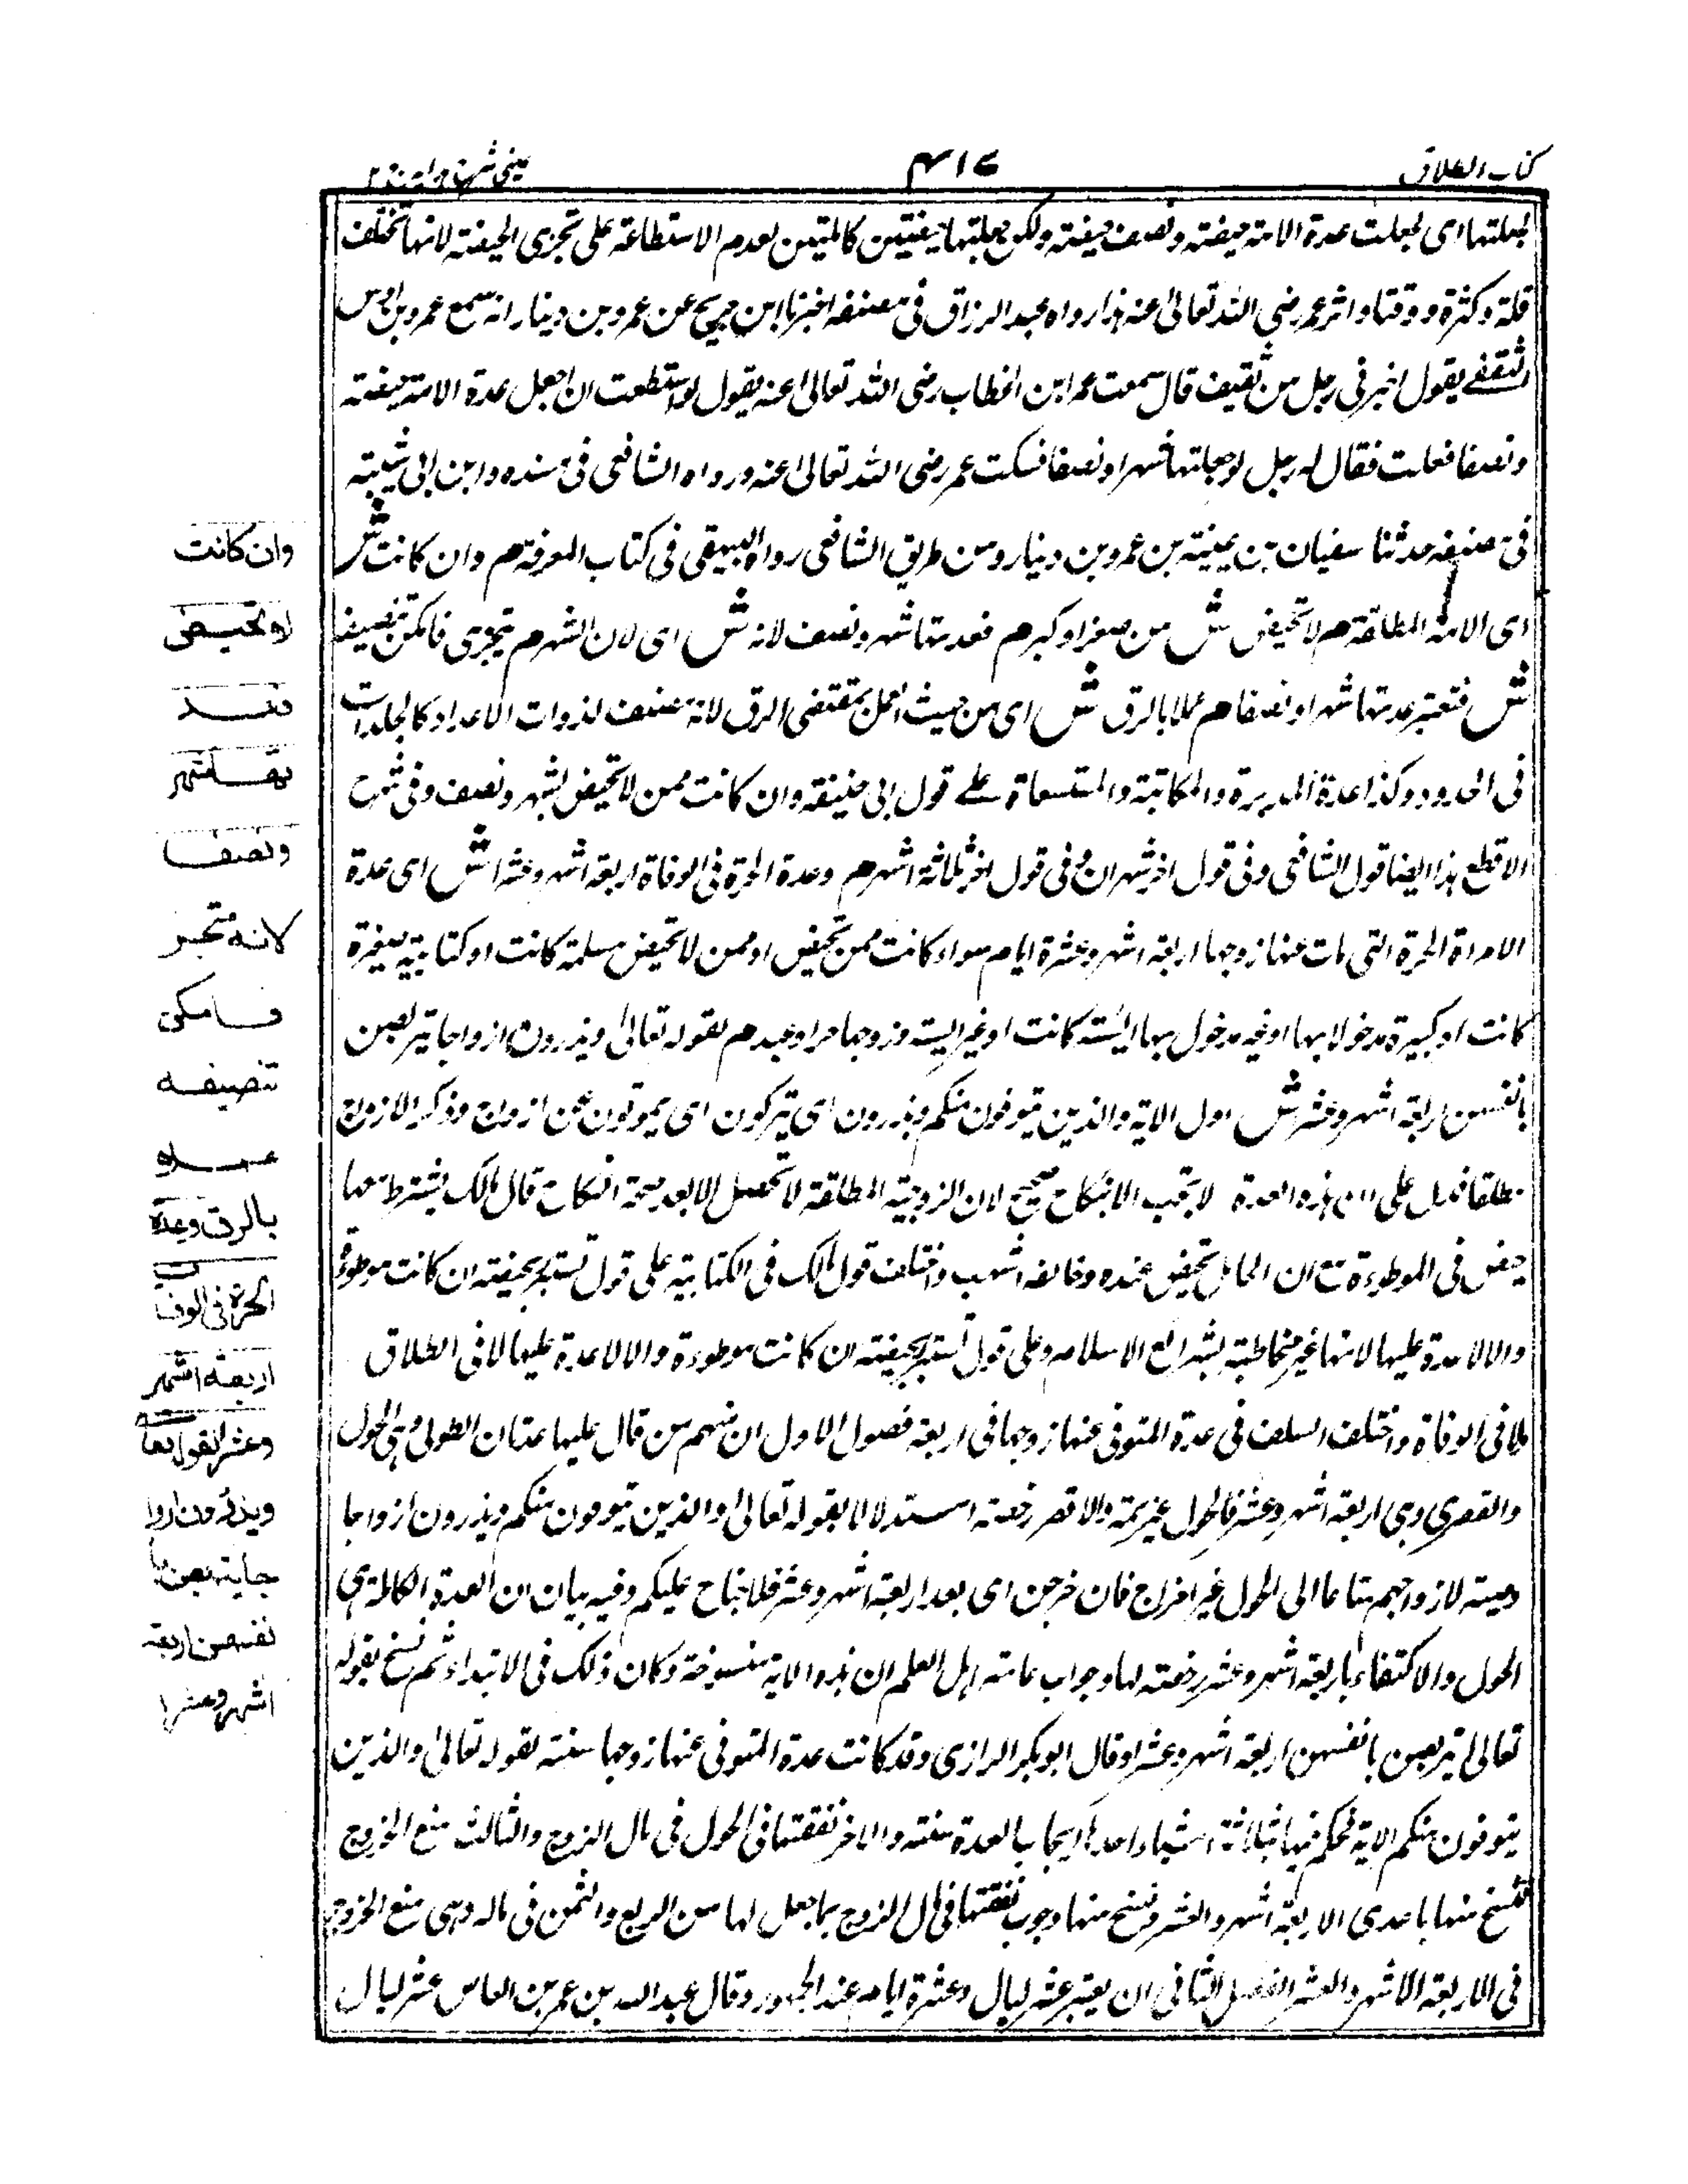 كتاب الطلاق
٤١٧
عینی شرح هدایة ج ٢
لجعلتها ای لجعلت عدة الامة حیضة ونصف حیضة ولکن جعلتها حیضتین کاملتین لعدم الاستطاعة علی تجزی الحیضة لانها تختلف
قلة وکثرة ووقتا واثر عمر رضی الله تعالیٰ عنه هذا رواه عبد الرزاق فی مصنفه اخبرنا ابن جریج عن عمرو بن دینار انه سمع عمرو بن اوس
الثقفے یقول اخبرنی رجل من ثقیف قال سمعت عمر ابن الخطاب رضی الله تعالیٰ عنه یقول لو استطعت ان اجعل عدة الامة حیضة
ونصفا فعلت فقال له رجل لو جعلتها شهرا ونصفا فسکت عمر رضی الله تعالیٰ عنه ورواه الشافعی فی مسنده وابن ابی شیبة
فی مصنفه حدثنا سفیان بن عیینة بن عمرو بن دینار ومن طریق الشافعی رواه البیهقی فی کتاب المعرفة م وان کانت ش
ای الامة المطلقة م لا تحیض ش من صغر او کبر م فعدتها شهر ونصف لانه ش ای لان الشهر م یتجزی فامکن تنصیفه
ش فتعتبر عدتها شهرا ونصفا م عملا بالرق ش ای من حیث العمل بمقتضی الرق لانه منصف لذوات الاعداد کالجلدات
فی الحدود وکذا عدة المدبرة والمکاتبة والمستسعاة علے قول ابی حنیفة وان کانت ممن لا تحیض بشهر ونصف وفی شرح
الاقطع هذا ایضا قول الشافعی وفی قول اخر شهران وفی قول اخر ثلاثة اشهر م وعدة الحرة فی الوفاة اربعة اشهر وعشرا ش ای عدة
الامراة الحرة التی مات عنها زوجها اربعة اشهر وعشرة ایام سواء کانت ممن تحیض او ممن لا تحیض مسلمة کانت او کتابیة صغیرة
کانت او کبیرة مدخولا بها او غیر مدخول بها ایسة کانت او غیر ایسة وزوجها حر او عبد م لقوله تعالیٰ ویذرون ازواجا یتربصن
بانفسهن اربعة اشهر وعشر ش اول الایة والذین یتوفون منکم ویذرون ای یترکون ای یموتون عن ازواج وذکر الازواج
مطلقا فدل علی ان هذه العدة لا تجب الا بنکاح صحیح لان الزوجیة المطلقة لا تحصل الا بعد صحة النکاح قال مالک یشترط معها
حیض فی الموطوءة مع ان الحامل تحیض عنده وخالفه اشهب واختلف قول مالک فی الکتابیة علی قول تستبرئ بحیضة ان کانت موطوءة
والا لا عدة علیها لانها غیر مخاطبة بشرائع الاسلام وعلی قول تستبرئ بحیضة ان کانت موطوءة والا لا عدة علیها لا فی الطلاق
ولا فی الوفاة واختلف السلف فی عدة المتوفی عنها زوجها فی اربعة فصول الاول ان منهم من قال علیها عدتان الطولی وهی الحول
والقصری وهی اربعة اشهر وعشر فالحول عزیمة والاقصر رخصة استدلالا بقوله تعالیٰ والذین یتوفون منکم ویذرون ازواجا
وصیة لازواجهم متاعا الی الحول غیر اخراج فان خرجن ای بعد اربعة اشهر وعشر فلا جناح علیکم وفیه بیان ان العدة الکاملة هی
الحول والاکتفاء باربعة اشهر وعشر رخصة لها وجواب عامة اهل العلم ان هذه الایة منسوخة وکان ذلک فی الابتداء ثم نسخ بقوله
تعالی یتربصن بانفسهن اربعة اشهر وعشرا وقال ابو بکر الرازی وقد کانت عدة المتوفی عنها زوجها سنة بقوله تعالیٰ والذین
یتوفون منکم الایة فحکم فیها بثلاثة اشیاء احدها ایجاب العدة سنة والاخر نفقتها فی الحول فی مال الزوج والثالث منع الخروج
فنسخ منها ما عدی الاربعة اشهر والعشر ونسخ منها وجوب نفقتها فی مال الزوج بما جعل لها من الربع والثمن فی ماله وبقی منع الخروج
فی الاربعة الاشهر والعشر الفصل الثانی ان یعتبر عشر لیال وعشرة ایام عند الجمهور وقال عبد الله بن عمر بن العاس عشر لیال
وان کانت
لا تحیض
فعد
تها شهر
ونصفا
لانه متجز
فامکن
تنصیفه
عملا
بالرق وعدة
الحرة فی الوفا
اربعة اشهر
وعشر لقوله تعا
ویذرون ازوا
جا یتربصن با
نفسهن اربعة
اشهر وعشرا